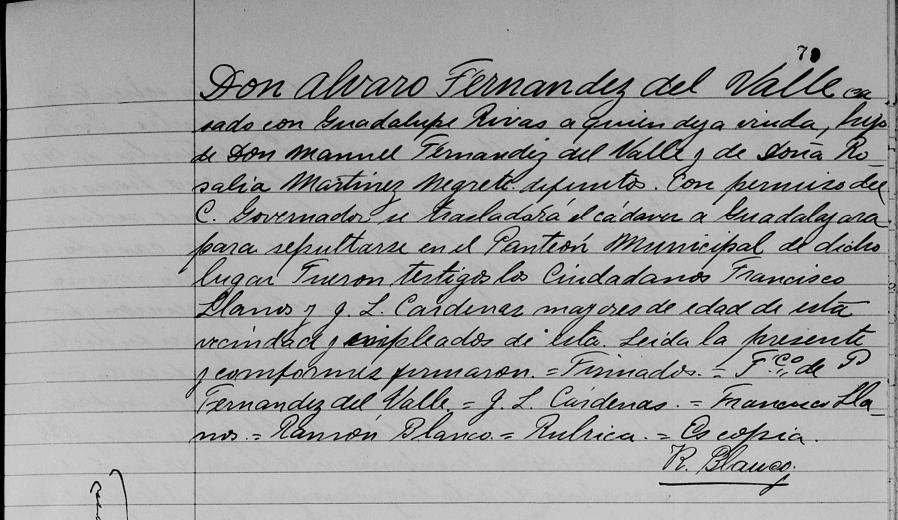 79
Don Alvaro Fernandez del Valle ca
sado con Guadalupe Rivas a quien deja viuda, hijo
de Don Manuel Fernandez del Valle y de Doña Ro-
salia Martinez Negrete difuntos. Con permiso del
C. Governador se trasladará el cádaver a Guadalajara
para sepultarse en el Panteón Municipal de dicho
lugar Fueron testigos los Ciudadanos Francisco
Llanos y J. L. Cardenas mayores de edad de esta
vecindad y empleados de esta. Leida la presente
y comformes firmaron. = Firmados. = F.co de P
Fernandez del Valle = J. L. Cárdenas. = Francisco Lla-
nos. = Ramón Blanco = Rubrica. = Es copia.
R. Blanco.